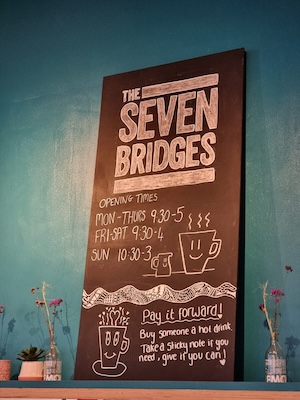 THE
SEVEN
BRIDGES
OPENING TIMES
MON-THURS 9:30-5
FRI-SAT 9:30-4
SUN 10:30-3
Pay it forward!
Buy someone a hot drink.
Take a sticky note if you
need, give if you can!